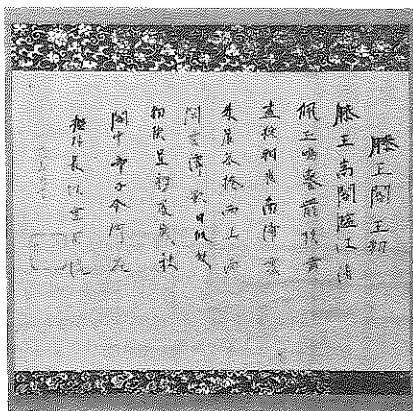 滕王閣 王勃
滕王高閣臨江渚
佩玉鳴鸞罷歌舞
畫棟朝飛南浦雲
朱簾暮捲西山雨
閑雲潭影日悠悠
物換星移幾度秋
閣中帝子今何在
檻外長江空自流